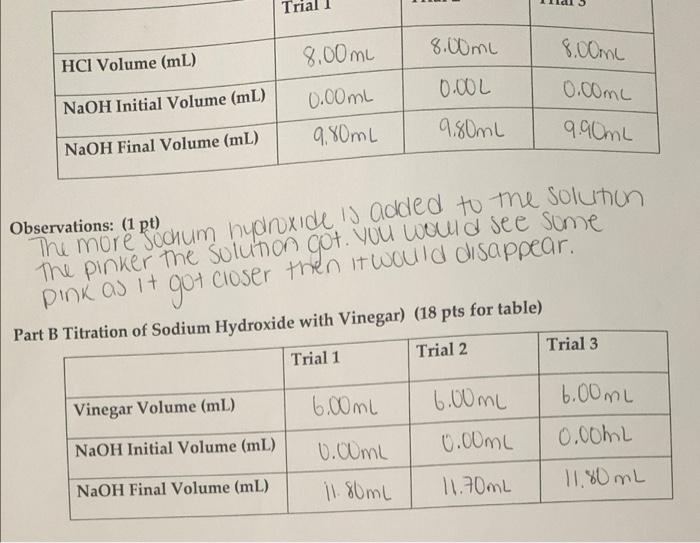 Trial 1
HCl Volume (mL) 8.00mL 8.00mL 8.00mL
NaOH Initial Volume (mL) 0.00mL 0.00L 0.00mL
NaOH Final Volume (mL) 9.80mL 9.80mL 9.90mL
Observations: (1 pt)
The more sodium hydroxide is added to the solution
the pinker the solution got. You would see some
pink as it got closer then it would disappear.
Part B Titration of Sodium Hydroxide with Vinegar) (18 pts for table)
Trial 1 Trial 2 Trial 3
Vinegar Volume (mL) 6.00mL 6.00mL 6.00mL
NaOH Initial Volume (mL) 0.00mL 0.00mL 0.00mL
NaOH Final Volume (mL) 11.80mL 11.70mL 11.80mL